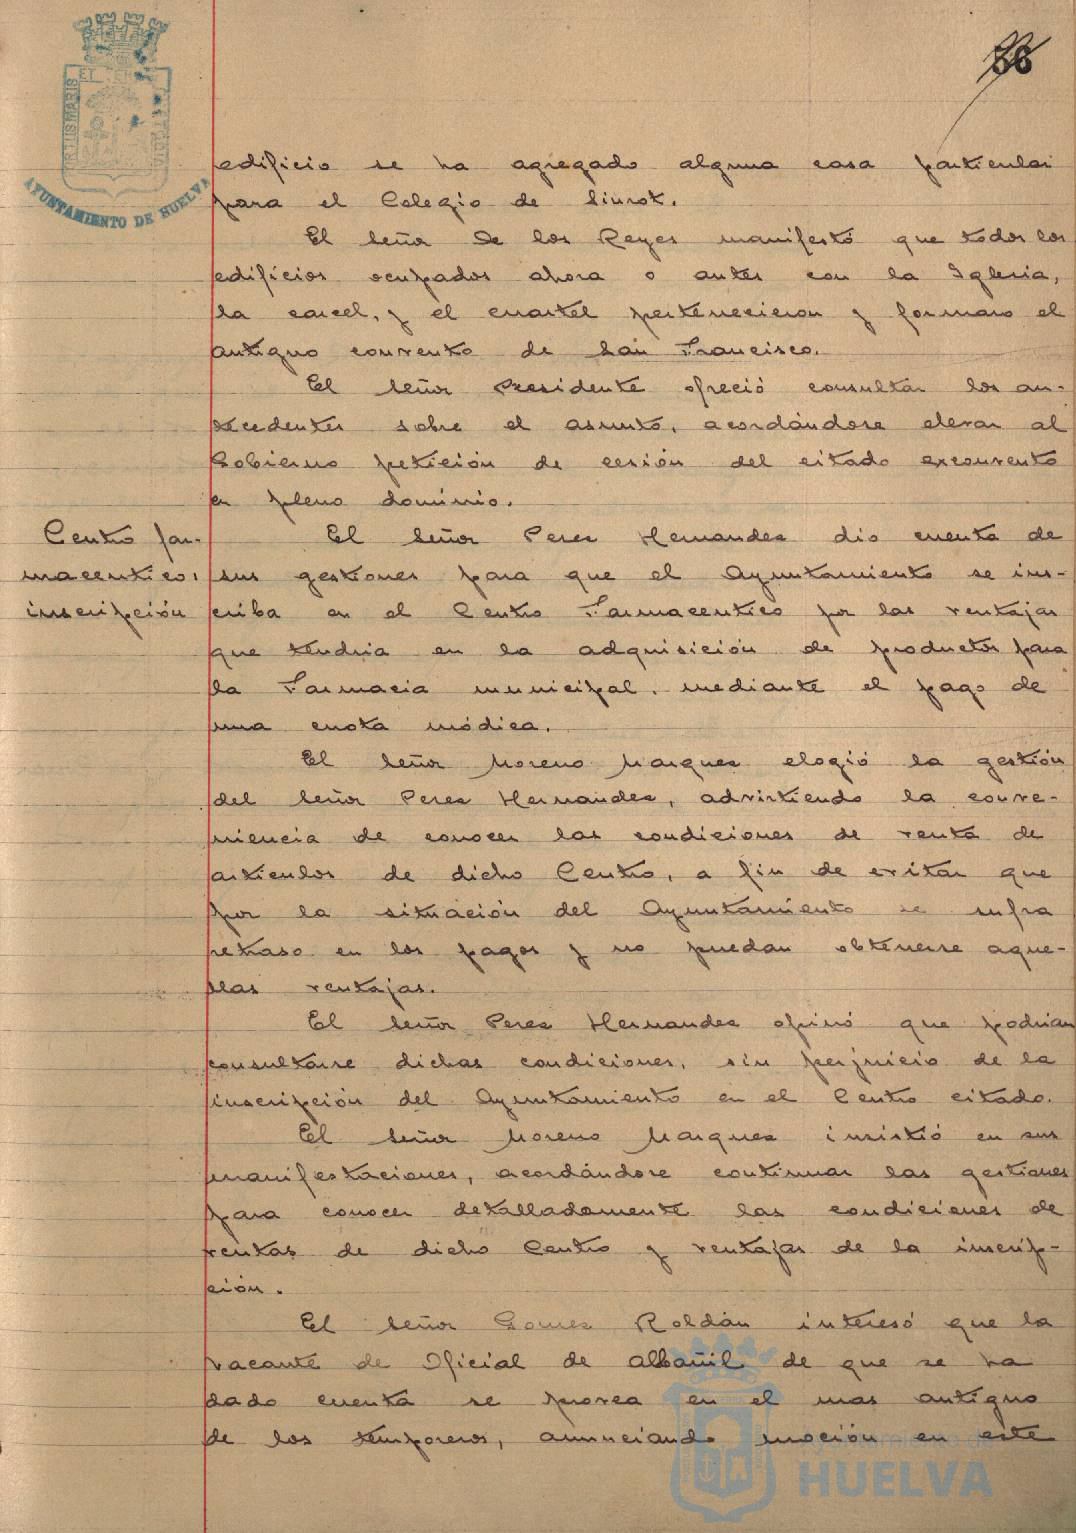 36
AYUNTAMIENTO DE HUELVA
edificio se ha agregado alguna casa particular
para el Colegio de Siurot.
El señor De los Reyes manifestó que todos los
edificios ocupados ahora o antes con la Iglesia,
la carcel, y el cuartel pertenecieron y formaro el
antiguo convento de San Francisco.
El señor Presidente ofreció consultar los an-
tecedentes sobre el asunto, acordándose elevar al
Gobierno petición de cesión del citado exconvento
en pleno dominio.
Centro far-
maceutico,
inscripción
El señor Perez Hernandez dio cuenta de
sus gestiones para que el Ayuntamiento se ins-
criba en el Centro Farmaceutico por las ventajas
que tendria en la adquisición de productos para
la Farmacia municipal, mediante el pago de
una cuota módica.
El señor Moreno Marquez elogió la gestión
del señor Perez Hernandez, advirtiendo la conve-
niencia de conocer las condiciones de venta de
articulos de dicho Centro, a fin de evitar que
por la situación del Ayuntamiento se sufra
retraso en los pagos y no puedan obtenerse aque-
llas ventajas.
El señor Perez Hernandez opinó que podrian
consultarse dichas condiciones, sin perjuicio de la
inscripción del Ayuntamiento en el Centro citado.
El señor Moreno Marquez insistió en sus
manifestaciones, acordándose continuar las gestiones
para conocer detalladamente las condiciones de
ventas de dicho Centro y ventajas de la inscrip-
ción.
El señor Gomez Roldán interesó que la
vacante de Oficial de albañil de que se ha
dado cuenta se provea en el mas antiguo
de los temporeros, anunciando moción en este
HUELVA